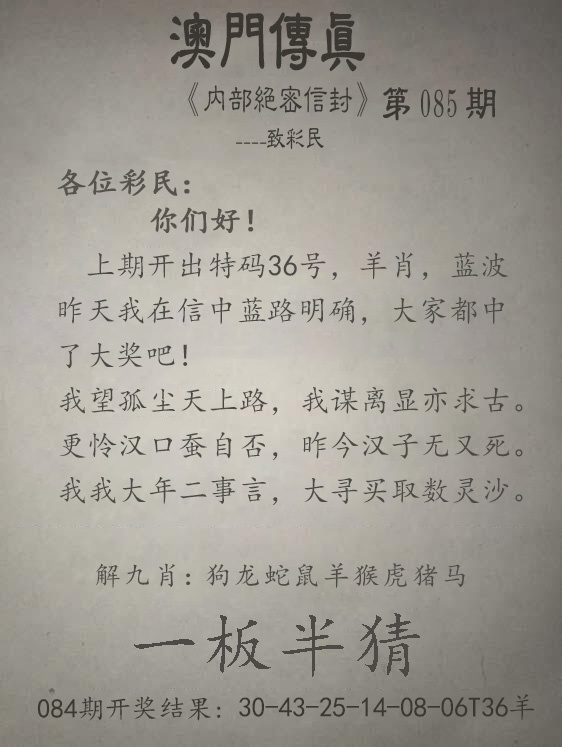 澳門傳眞
《内部絕密信封》第085期
----致彩民
各位彩民：
你们好！
上期开出特码36号，羊肖，蓝波
昨天我在信中蓝路明确，大家都中
了大奖吧！
我望孤尘天上路，我谋离显亦求古。
更怜汉口蚕自否，昨今汉子无又死。
我我大年二事言，大寻买取数灵沙。
解九肖：狗龙蛇鼠羊猴虎猪马
一板半猜
084期开奖结果：30-43-25-14-08-06T36羊